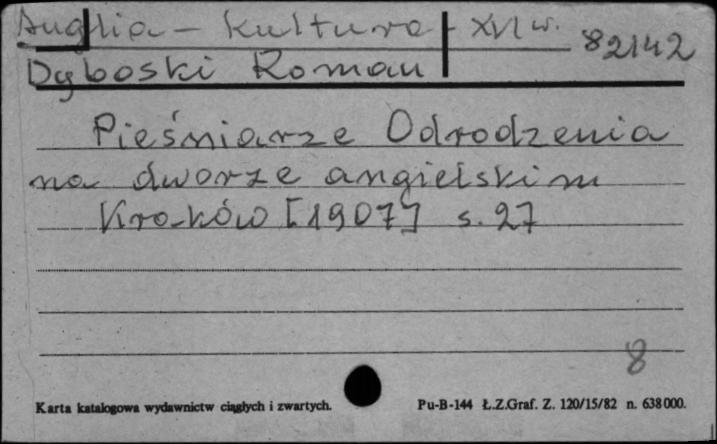 Anglia - kultura XVI w. 82142
Dyboski Roman
Pieśniarze Odrodzenia
na dworze angielskim
Kraków [1907] s. 27
8
Karta katalogowa wydawnictw ciągłych i zwartych. Pu-B-144 Ł.Z.Graf. Z. 120/15/82 n. 638000.